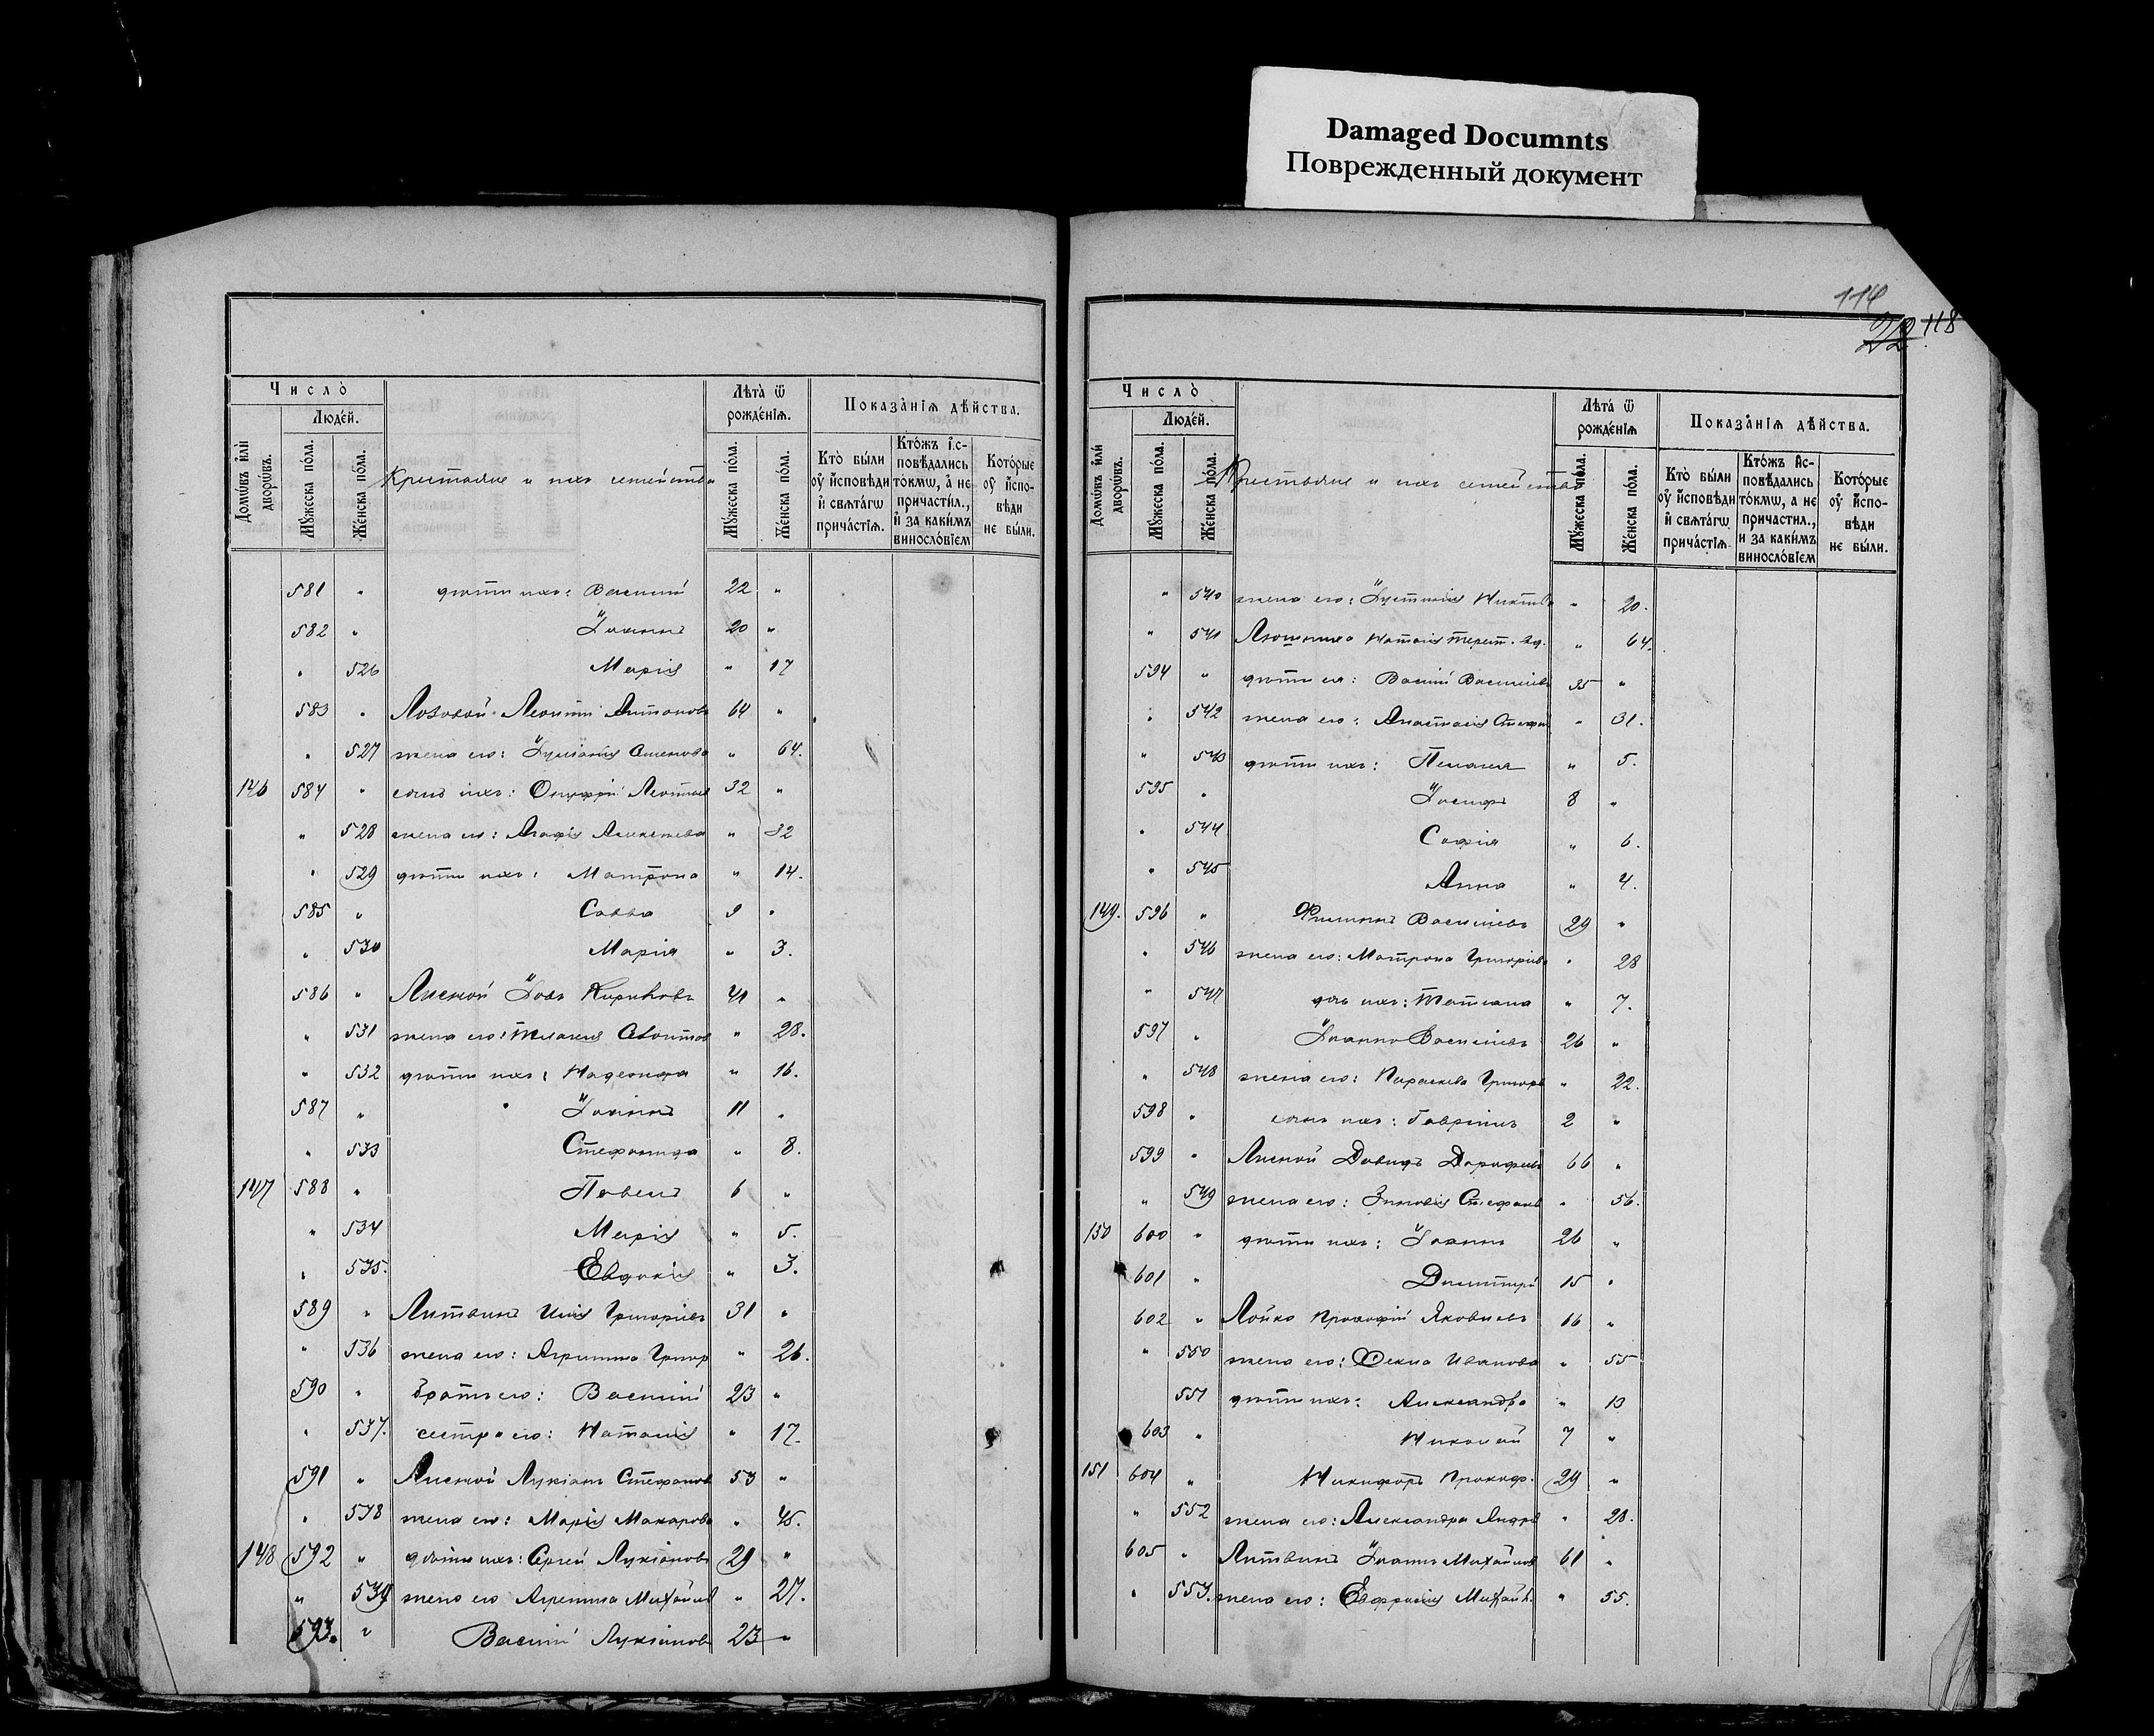 Damaged Documnts
Поврежденный документ
Число̀
Люде́й.
Домѡ́въ и҆лѝ дворѡ́въ.
Мꙋ́жеска по́ла.
Же́нска по́ла.
Крестьяне и ихъ семейства
Лѣ́та ѿ рожде́нїѧ.
Мꙋ́жеска по́ла.
Же́нска по́ла.
Показа̑нїѧ дѣ́йства.
Кто̀ бы́ли оу҆ и҆сповѣди и҆ свѧта́гѡ прича́стїѧ.
Кто́жъ і҆сповѣдались то́кмѡ, а҆ не причастил., и҆ за каки́мъ винослові́емъ
Кото́рые оу҆ и҆сповѣди не бы́ли.
581 " дѣти ихъ: Василій 22 "
582 " Іоаннъ 20 "
" 526 Марія " 17
583 " Лозовой Леонтій Антоновъ 64 "
" 527 жена его: Іуліанія Семенова " 64.
146 584 " сынъ ихъ: Онуфрій Леонтіев 32 "
" 528 жена его: Агафія Алексѣева " 32
" 529 дѣти ихъ: Матрона " 14.
585 " Савва 9 "
" 530 Марія " 3.
586 " Лисной Іовъ Кириковъ 41 "
" 531 жена его: " 28.
" 532 дѣти ихъ: Надежда " 16.
587 " Іоаннъ 11 "
" 533 Стефанида " 8.
147 588 " Павелъ 6 "
" 534 Марія " 5.
" 535. Евдокія " 3.
589 " Литвинъ Илія Григоріевъ 31 "
" 536 жена его: Агрипина Григор " 26.
590 " братъ его: Василій 23 "
" 537. сестра его: Наталія " 17.
591 " Лисной Лукіанъ Стефанов 53 "
" 538 жена его: Марія Макарова " 45.
148 592 " дѣти ихъ: Сергѣй Лукіановъ 29 "
" 539 жена его Агрипина Михайлов " 27.
593. " Василій Лукіанов 23 "
114
118
Число̀
Люде́й.
Домѡ́въ и҆лѝ дворѡ́въ.
Мꙋ́жеска по́ла.
Же́нска по́ла.
Крестьяне и ихъ семейства
Лѣ́та ѿ рожде́нїѧ
Мꙋ́жеска по́ла.
Же́нска по́ла.
Показа̑нїѧ дѣ́йства.
Кто̀ бы́ли оу҆ и҆сповѣди и҆ свѧта́гѡ прича́стїѧ
Кто́жъ и҆сповѣдались то́кмѡ, а не причастил., и за каки́мъ винослові́емъ
Кото́рые оу҆ и҆сповѣди не бы́ли.
" 540 жена его: Іустинія Никит " 20.
" 541 Наталія Терент. вд. " 64.
594 " дѣти ея: Василій Васильевъ 35 "
" 542 жена его: Анастасія Стефан " 31.
" 543 дѣти ихъ: Пелагія " 5.
595 " Іосифъ 8 "
" 544 Софія " 6.
" 545 Анна " 4.
149. 596 " Филиппъ Васильевъ 29 "
" 546 жена его: Матрона Григоріев " 28
" 547 дочь ихъ: Татіана " 7.
597 " Іоаннъ Васильевъ 26 "
" 548 жена его: Параскева Григорь " 22.
598 " сынъ ихъ: Гавріилъ 2 "
599 " Лисной Давидъ Дорофеев 66 "
" 549 жена его: Зиновія Стефан " 56.
150 600 " дѣти ихъ: Іоаннъ 26 "
601 " Димитрій 15 "
602 " Лойко Прокофій Яковлевъ 66 "
" 550 жена его: Фекла Иванова " 55
551 дѣти ихъ: Александра " 13
603 " Николай 7 "
151 604 " Никифоръ Прокоф. 29 "
" 552 жена его: Александра Андре " 28.
605 " Литвинъ Іоаннъ Михайлов 61 "
" 553. жена его: Евфросинія Михайл. " 55.